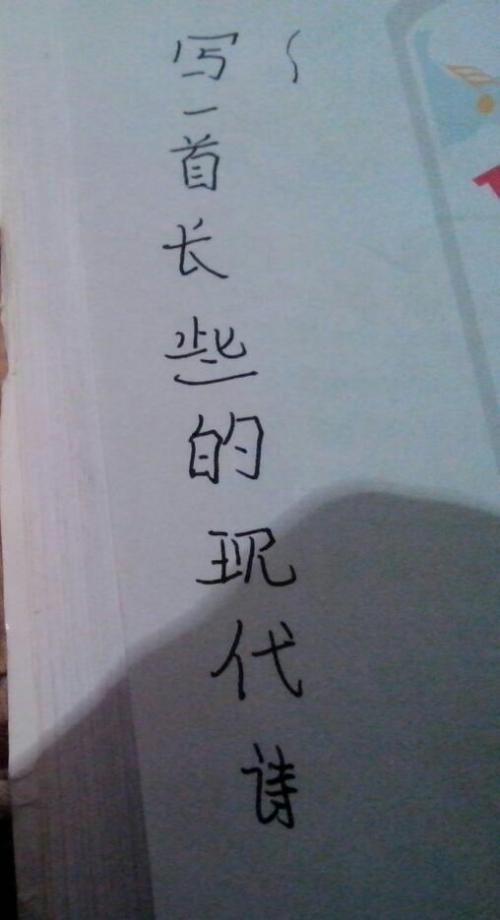 写一首长些的现代诗